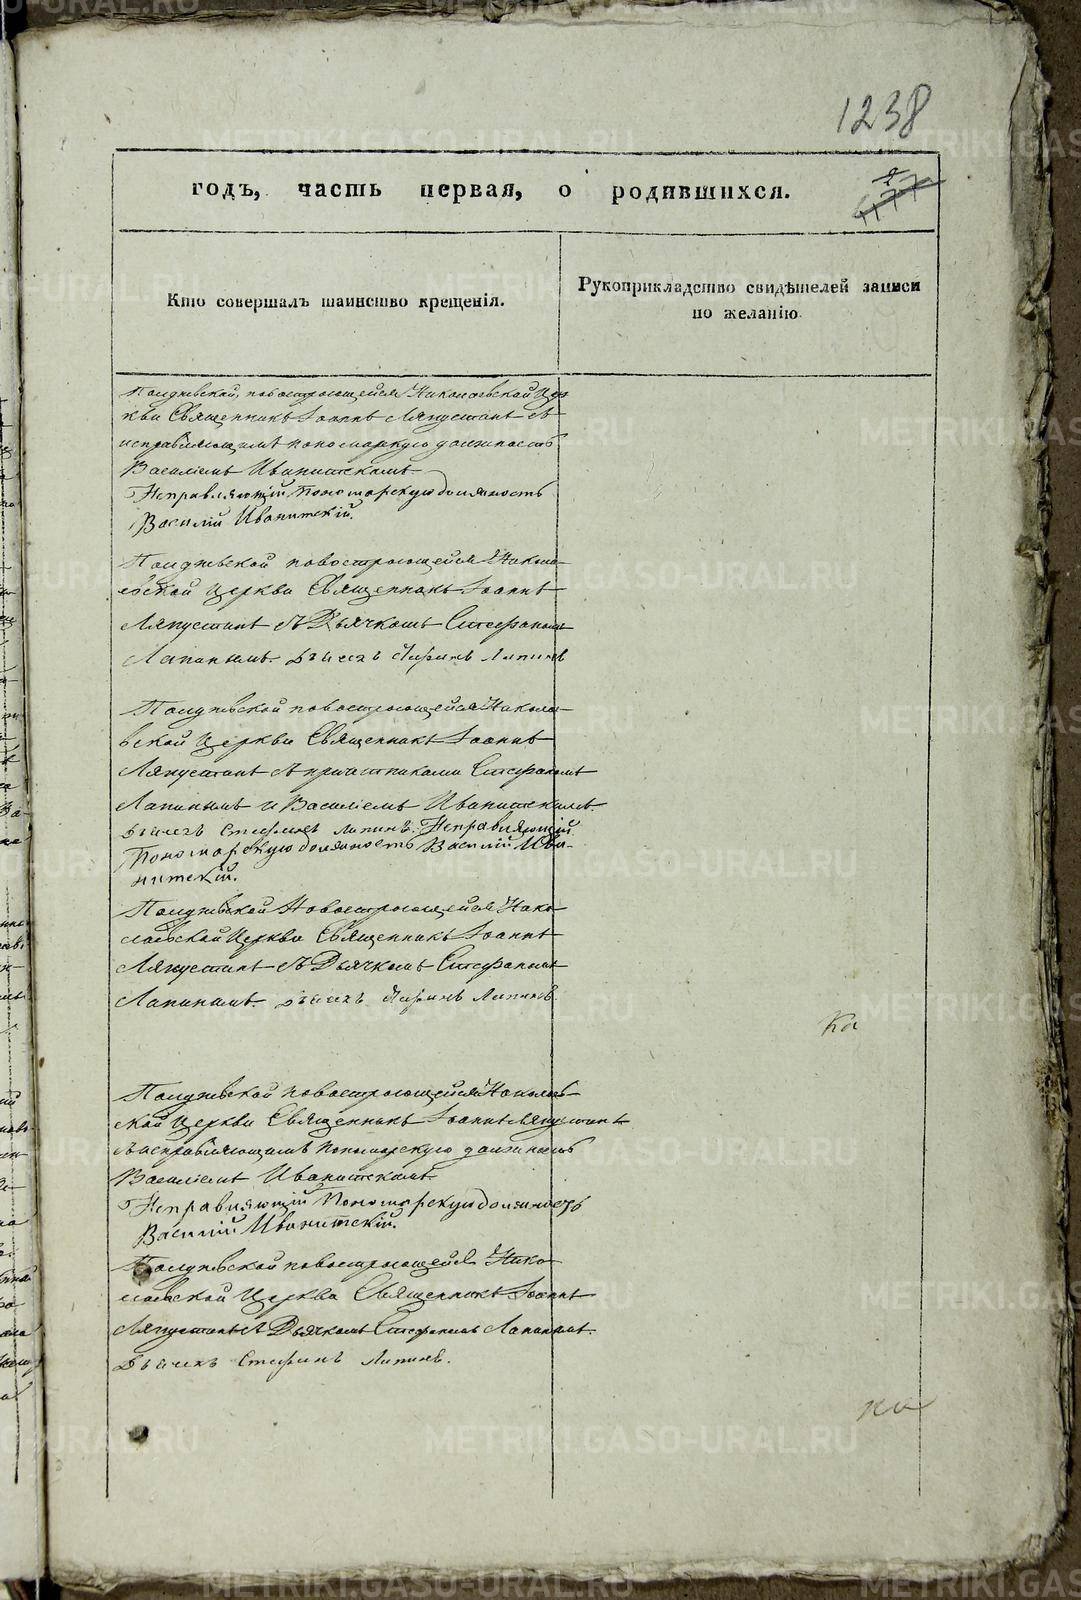 1238
годъ, часть первая, о родившихся.
Кто совершалъ таинство крещенія.
Рукоприкладство свидѣтелей записи
по желанію
Полдневской, новостроющейся Николаевской Цер
кви Священникъ Іоаннъ Ляпустинъ съ
исправляющимъ пономарскую должность
Василіемъ Иваницкимъ
Исправляющій Пономарскую должность
Василій Иваницкій.
Полдневской новостроющейся Никола-
евской Церкви Священникъ Іоаннъ
Ляпустинъ съ Дьячкомъ Стефаномъ
Лапинымъ. Дьячекъ Стефанъ Лапинъ
Полдневской новостроющейся Никола-
евской Церкви Священникъ Іоаннъ
Ляпустинъ съ причетниками Стефаномъ
Лапинымъ и Василіемъ Иваницкимъ.
Дьячекъ Стефанъ Лапинъ. Исправляющій
Пономарскую должность Василій Ива-
ницкій.
Полдневской Новостроющейся Нико-
лаевской Церкви Священникъ Іоаннъ
Ляпустинъ съ Дьячкомъ Стефаномъ
Лапинымъ. Дьячекъ Стефанъ Лапинъ.
Ка
Полдневской новостроющейся Николаев-
ской Церкви Священникъ Іоаннъ Ляпустинъ
съ исправляющимъ пономарскую должность
Василіемъ Иваницкимъ.
Исправляющій Пономарскую должность
Василій Иваницкій.
Полдневской новостроющейся Нико-
лаевской Церкви Священникъ Іоаннъ
Ляпустинъ съ Дьячкомъ Стефаномъ Лапинымъ.
Дьячекъ Стефанъ Лапинъ.
METRIKI.GASO-URAL.RU